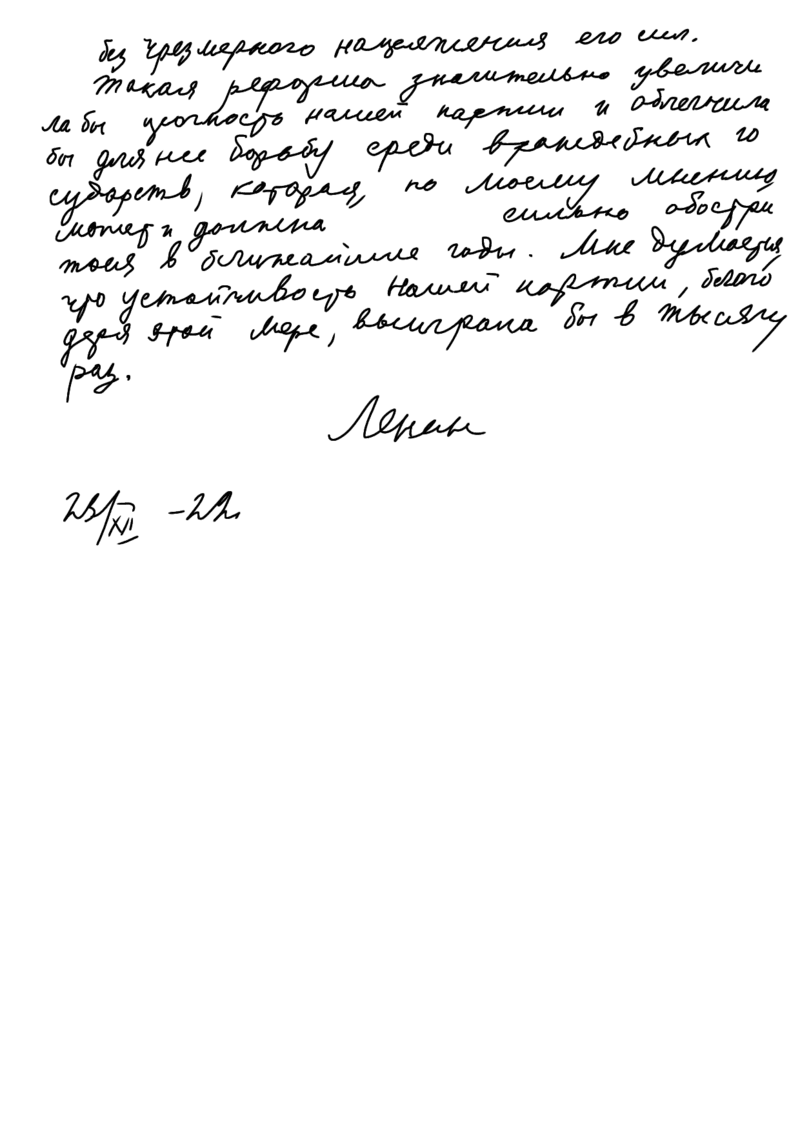 без чрезмерного напряжения его сил.
Такая реформа значительно увеличи
ла бы прочность нашей партии и облегчила
бы для нее борьбу среди враждебных го
сударств, которая, по моему мнению,
может и должна сильно обостри
ться в ближайшие годы. Мне думается,
что устойчивость нашей партии, благо
даря этой мере, выиграла бы в тысячу
раз.
Ленин
23/XII -22г